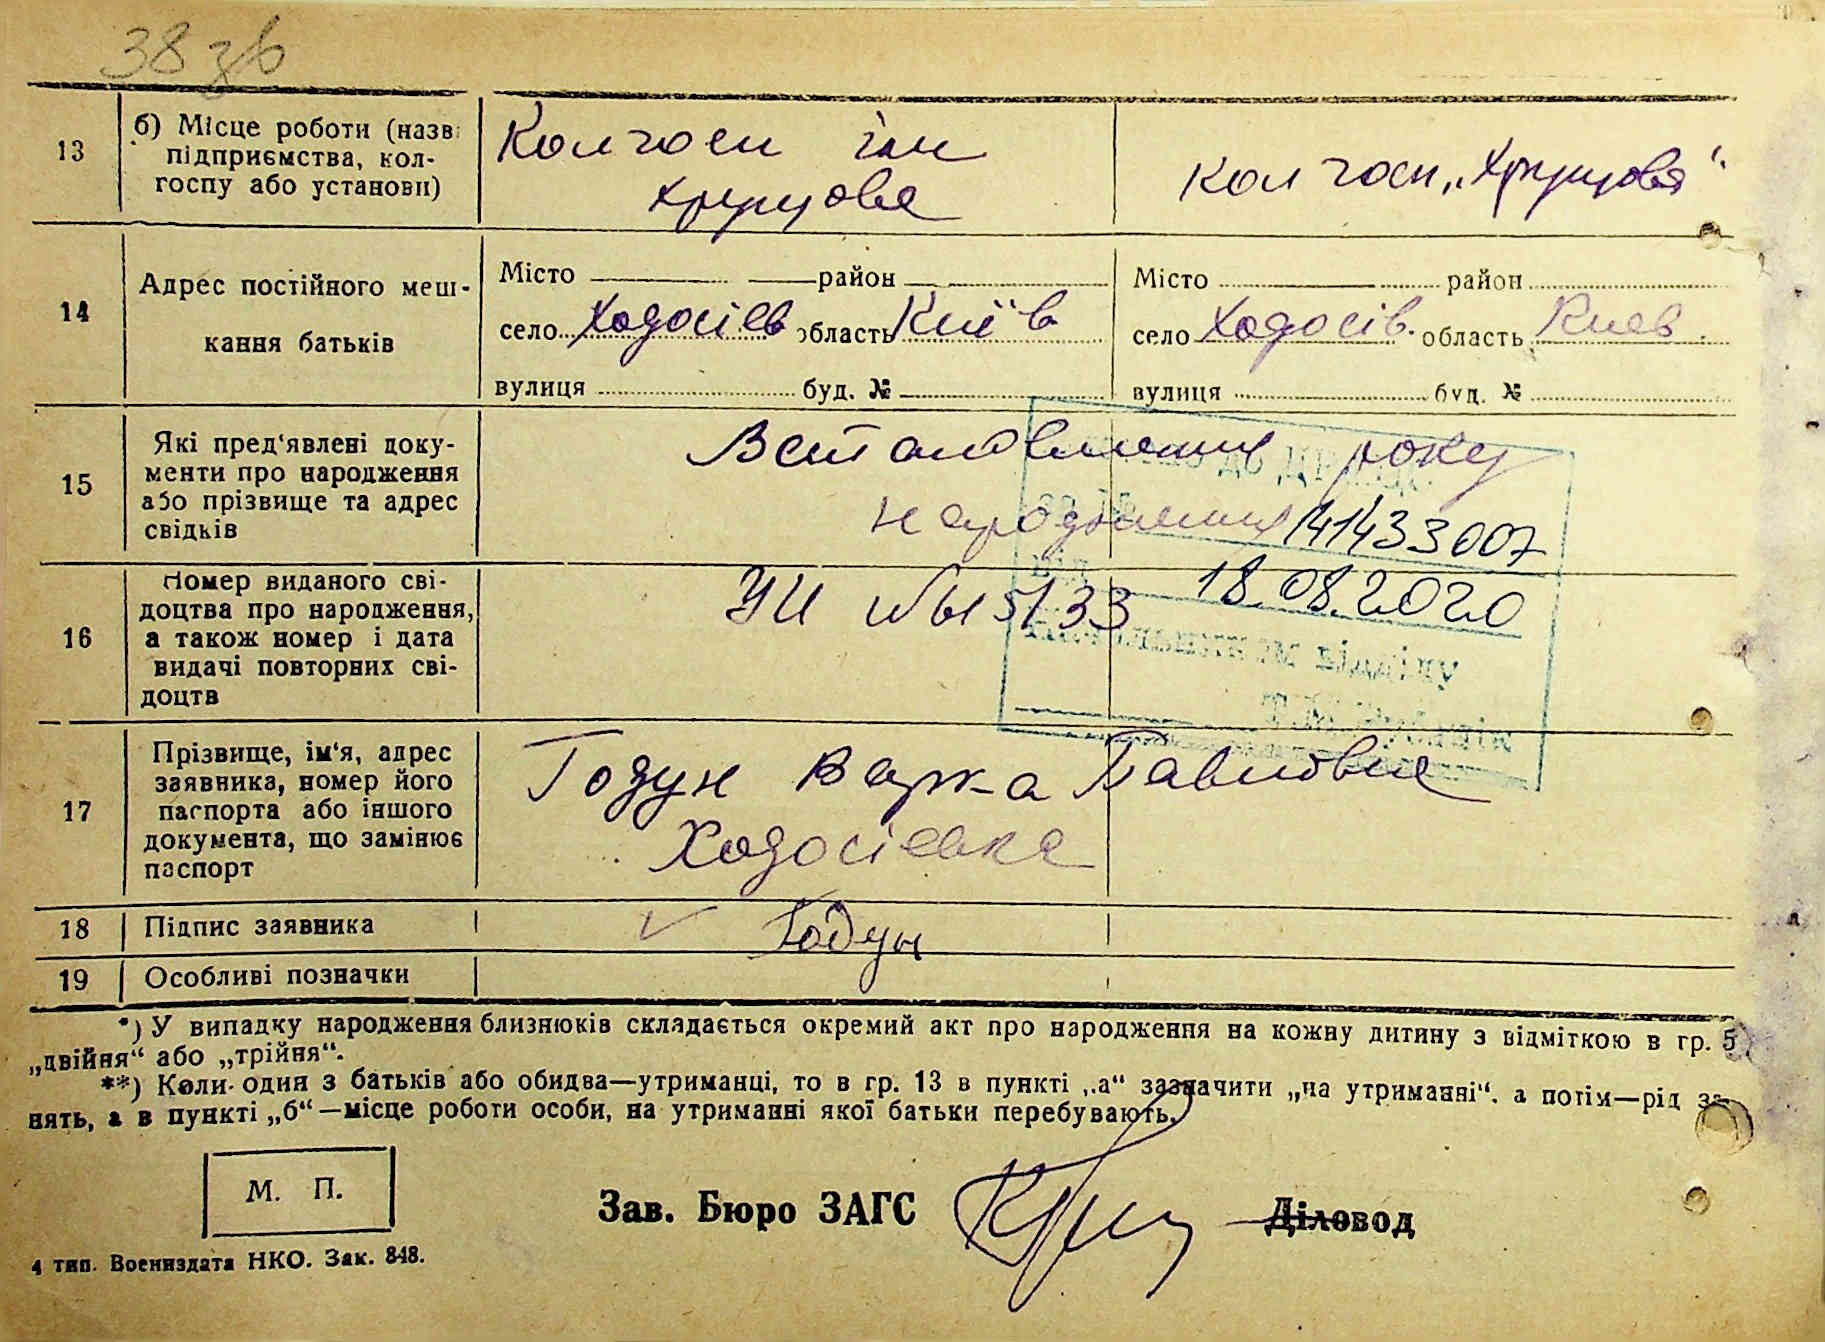 38 зв
13 б) Місце роботи (назв підприємства, кол-госпу або установи)
Колгосп ім
Хрущова
Колгосп „Хрущова“
14 Адрес постійного меш-
кання батьків
Місто район
село Ходосіев область Київ
вулиця буд. №
Місто район
село Ходосів. область Киев
вулиця буд. №
15 Які пред'явлені доку-
менти про народження
або прізвище та адрес
свідків
Встановлення року
народження 141433007
16 Номер виданого сві-
доцтва про народження,
а також номер і дата
видачі повторних сві-
доцтв
18.08.2020
17 Прізвище, ім'я, адрес
заявника, номер його
паспорта або іншого
документа, що замінює
паспорт
Годун Варка Павловна
Ходосіевка
18 Підпис заявника Годун
19 Особливі позначки
*) У випадку народження близнюків складається окремий акт про народження на кожну дитину з відміткою в гр. 5
„двійня“ або „трійня“.
**) Коли один з батьків або обидва—утриманці, то в гр. 13 в пункті „а“ зазначити „на утриманні“. а потім—рід за-
нять, а в пункті „б“—місце роботи особи, на утриманні якої батьки перебувають.
М. П.
Зав. Бюро ЗАГС Діловод
4 тип. Воениздата НКО. Зак. 848.